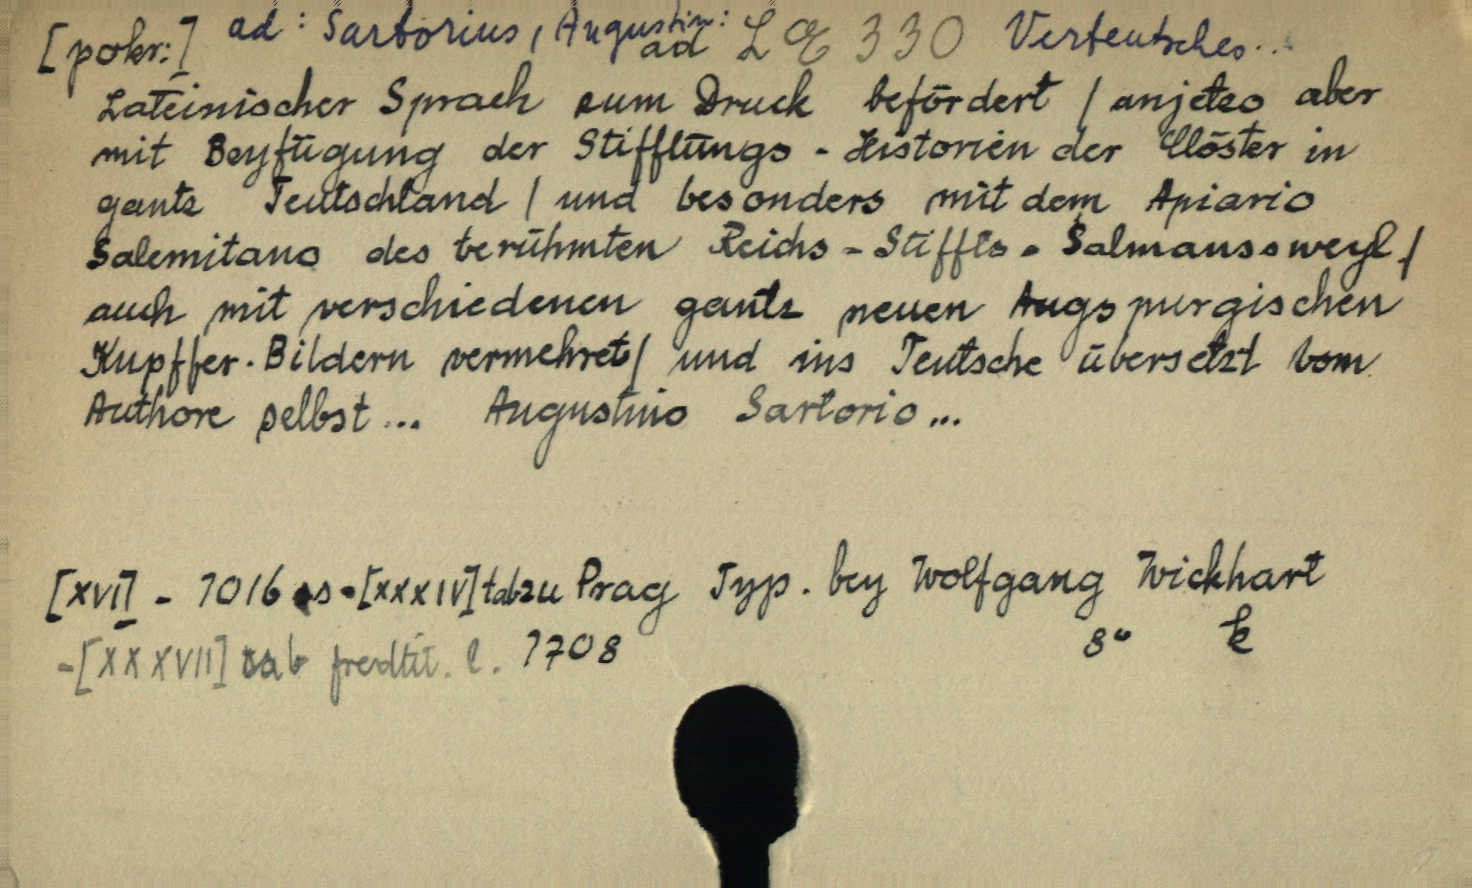 [pokr:] ad: Sartorius, Augustin: ad LE 330 Verteutsches...
Lateinischer Sprach zum Druck befördert / anjetzo aber
mit Beyfügung der Stifftungs - Historien der Clöster in
gantz Teutschland / und besonders mit dem Apiario
Salemitano des berühmten Reichs - Stiffts - Salmanssweyl /
auch mit verschiedenen gantz neuen Augspurgischen
Kupffer-Bildern vermehret / und ins Teutsche übersetzt vom
Authore selbst... Augustino Sartorio...
[XVI] - 1016 s - [XXXIV] tab zu Prag Typ. bey Wolfgang Wickhart
- [XXXVII] tab tit. l. 1708 8° k